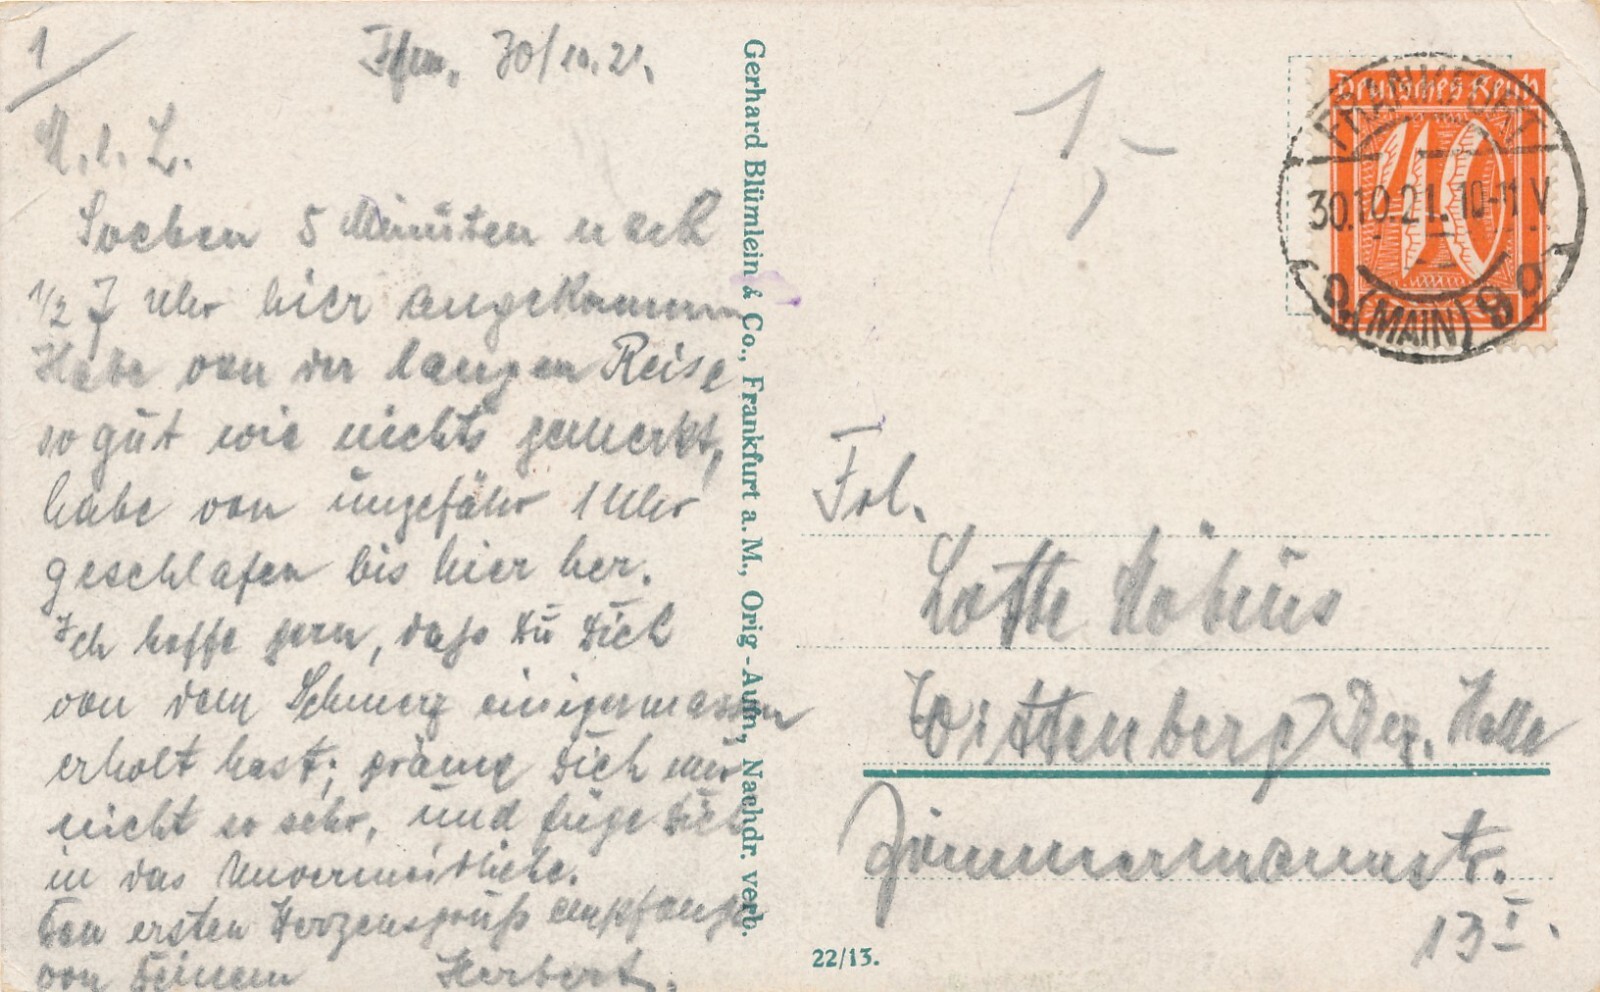 1
Ffm. 30/10.21.
M. l. L.
Soeben 5 Minuten nach
1/2 7 Uhr hier angekommen
Habe von der langen Reise
so gut wie nichts gemerkt,
habe von ungefähr 1 Uhr
geschlafen bis hier her.
Ich hoffe gern, dass Du Dich
von dem Schmerz einigermassen
erholt hast; gräme Dich nur
nicht so sehr, und füge Dich
in das Unvermeidliche.
Den ersten Herzensgruß empfange
von Deinem Herbert.
Gerhard Blümlein & Co., Frankfurt a. M., Orig.-Aufn., Nachdr. verb.
22/13.
1,-
Deutsches Reich
40
FRANKFURT
30.10.21. 10-11 V
(MAIN) 9
Frl.
Lotte Möbius
Wittenberg Bez. Halle
Zimmermannstr.
13 I.